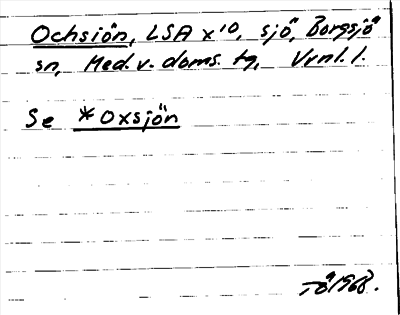 Ochsiön, LSA x¹⁰, sjö, Borgsjö
sn, Med. v. doms. tg, Vrnl. l.
Se *Oxsjön
TÖ 1968.